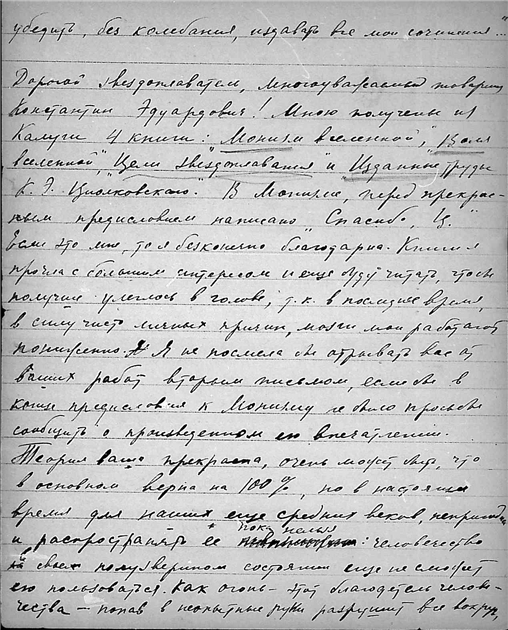 убедить, без колебания, издавать все мои сочинения..."
Дорогой звездоплаватель, многоуважаемый товарищ
Константин Эдуардович! Мною получены из
Калуги 4 книги: "Монизм вселенной", "Воля
вселенной", "Цели звездоплавания" и "Изданные труды
К. Э. Циолковского". В Монизме, перед прекрас-
ным предисловием написано "Спасибо, Ц."
Если это мне, то я бесконечно благодарна. Книги я
прочла с большим интересом и еще буду читать чтобы
получше улеглось в голове, т.к. в последнее время,
в силу чисто личных причин, мозги мои работают
пониженно. Я не посмела бы отрывать вас от
Ваших работ вторым письмом, если бы в
конце предисловия к Монизму не было просьбы
сообщить о произведенном ею впечатлении.
Теория ваша прекрасна, очень может быть, что
в основном верна на 100%, но в настоящее
время для наших еще средних веков, непригодна
и распространять ее пока нельзя: человечество
в своем полузверином состоянии еще не сможет
ею пользоваться. Как огонь – этот благодетель челове-
чества – попав в неопытные руки разрушит все вокруг,